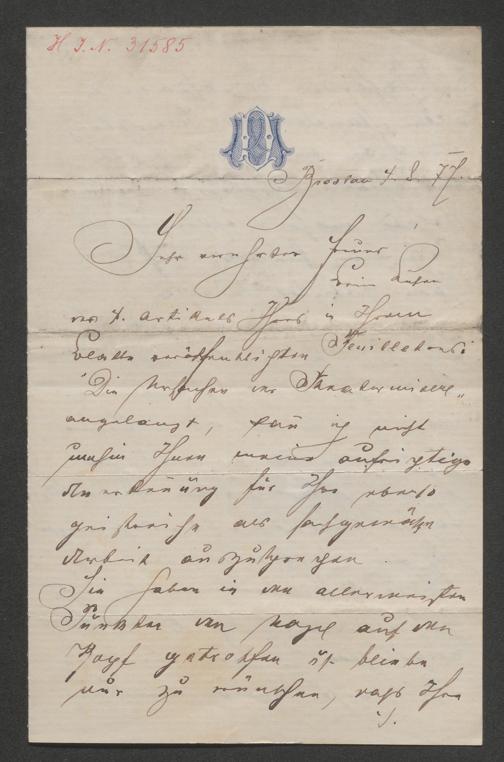 H. I. N. 31585
Breslau 4. 8. 77.
Sehr verehrter Freund!
Beim Lesen
des 4. Artikels Ihres in Ihrem
Blatte veröffentlichten Feuilletons:
"Die Ursachen der Theatermisere"
angelangt, kann ich nicht
umhin Ihnen meine aufrichtige
Anerkennung für Ihre ebenso
geistreiche als sachgemäße
Arbeit auszusprechen.
Sie haben in den allermeisten
Punkten den Nagel auf den
Kopf getroffen u. bliebe
nur zu wünschen, daß Ihre